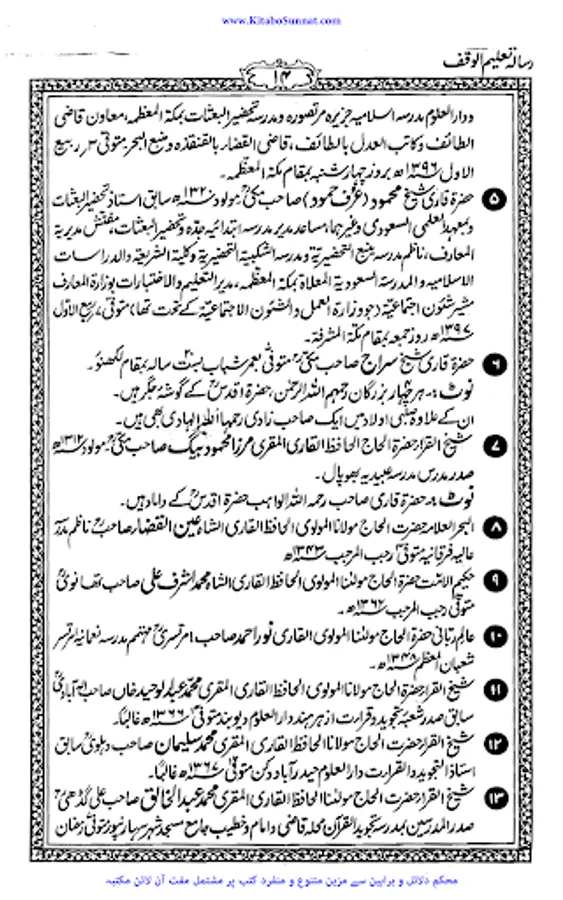 www.KitaboSunnat.com
رسالہ تعلیم الوقف
۱۴
و دار العلوم مدرسہ اسلامیہ جزیرہ مرتضورہ و مدرسہ تحضیر البعثات بمکۃ المعظمہ، معاون قاضی
الطائف و کاتب العدل بالطائف، قاضی القضار بالقنفذہ و ضبع البحر متوفی ۳ ربیع
الاول ۱۳۹۶ھ بروز چہار شنبہ بمقام مکۃ المعظّمہ۔
۵ حضرۃ قاری شیخ محمود (عُرف حمود) صاحب مکیؒ مولود ۱۳۲۰ھ سابق استاذ تحضیر البعثات
و بمعہد العلمی السعودی وغیرہما، مساعد مدیر مدرسہ ابتدائیہ جدّہ و تحضیر البعثات، مفتش مدیریۃ
المعارف، ناظم مدرسہ ینبع التحضیریۃ و مدرسہ الشکبیۃ التحضیریۃ و کلیۃ الشریعۃ والدراسات
الاسلامیہ و المدرسۃ السعودیۃ المعلاۃ بمکۃ المعظمہ، مدیر التعلیم والاختبارات بوزارۃ المعارف
مشیر شئون اجتماعیّۃ (جو وزارۃ العمل والشئون الاجتماعیّۃ کے تحت تھا) متوفی ربیع الاول
۱۳۹۷ھ روز جمعہ بمقام مکۃ المشرفۃ۔
۶ حضرۃ قاری شیخ سراج صاحب مکیؒ متوفی بعمر شباب بست سالہ بمقام لکھنؤ۔
نوٹ:۔ ہر چہار بزرگان رحمہم اللہ الرحمٰن، حضرۃ اقدسؒ کے گوشۂ جگر ہیں۔
ان کے علاوہ صُلبی اولاد میں ایک صاحب زادی رحمہا اللہ الہادی بھی ہیں۔
۷ شیخ القرار حضرۃ الحاج الحافظ القاری المقری مرزا محمود بیگ صاحب مکیؒ مولود ۱۳۱۲ھ
صدر مدرس مدرسہ عبیدیہ بھوپال۔
نوٹ:۔ حضرۃ قاری صاحب رحمہ اللہ الواہب حضرۃ اقدسؒ کے داماد ہیں۔
۸ البحر العلامہ حضرت الحاج مولانا المولوی الحافظ القاری الشاہ عین القضار صاحبؒ ناظم مدرسہ
عالیہ فرقانیہ متوفی رجب المرجب ۱۳۴۳ھ
۹ حکیم الامت حضرۃ الحاج مولٰنا المولوی الحافظ القاری الشاہ محمد اشرف علی صاحب تھانویؒ
متوفی رجب المرجب ۱۳۶۲ھ۔
۱۰ عالمِ ربّانی حضرۃ الحاج مولٰنا المولوی القاری نور احمد صاحب امرتسریؒ مہتمم مدرسہ نعمانیہ امرتسر
شعبان المعظم ۱۳۴۸ھ۔
۱۱ شیخ القرار حضرۃ الحاج مولانا المولوی الحافظ القاری المقری محمد عبد الوحید خاں صاحب الٰہ آبادیؒ
سابق صدر شعبۂ تجوید و قرارت ازہر ہند دار العلوم دیوبند متوفی ۱۳۶۶ھ غالبًا۔
۱۲ شیخ القرار حضرت الحاج مولانا الحافظ القاری المقری محمد سلیمان صاحب دہلویؒ سابق
استاذ التجوید والقرارت دار العلوم حیدرآباد دکن متوفی ۱۳۶۷ھ غالبًا۔
۱۳ شیخ القرار حضرت الحاج مولٰنا الحافظ القاری المقری محمد عبد الخالق صاحب علی گڈھیؒ
صدر المدرسین بمدرسہ تجوید القرآن محلہ قاضی و امام و خطیب جامع مسجد شہر سہارنپور متوفی رمضان
محکم دلائل و براہین سے مزین متنوع و منفرد کتب پر مشتمل مفت آن لائن مکتبہ